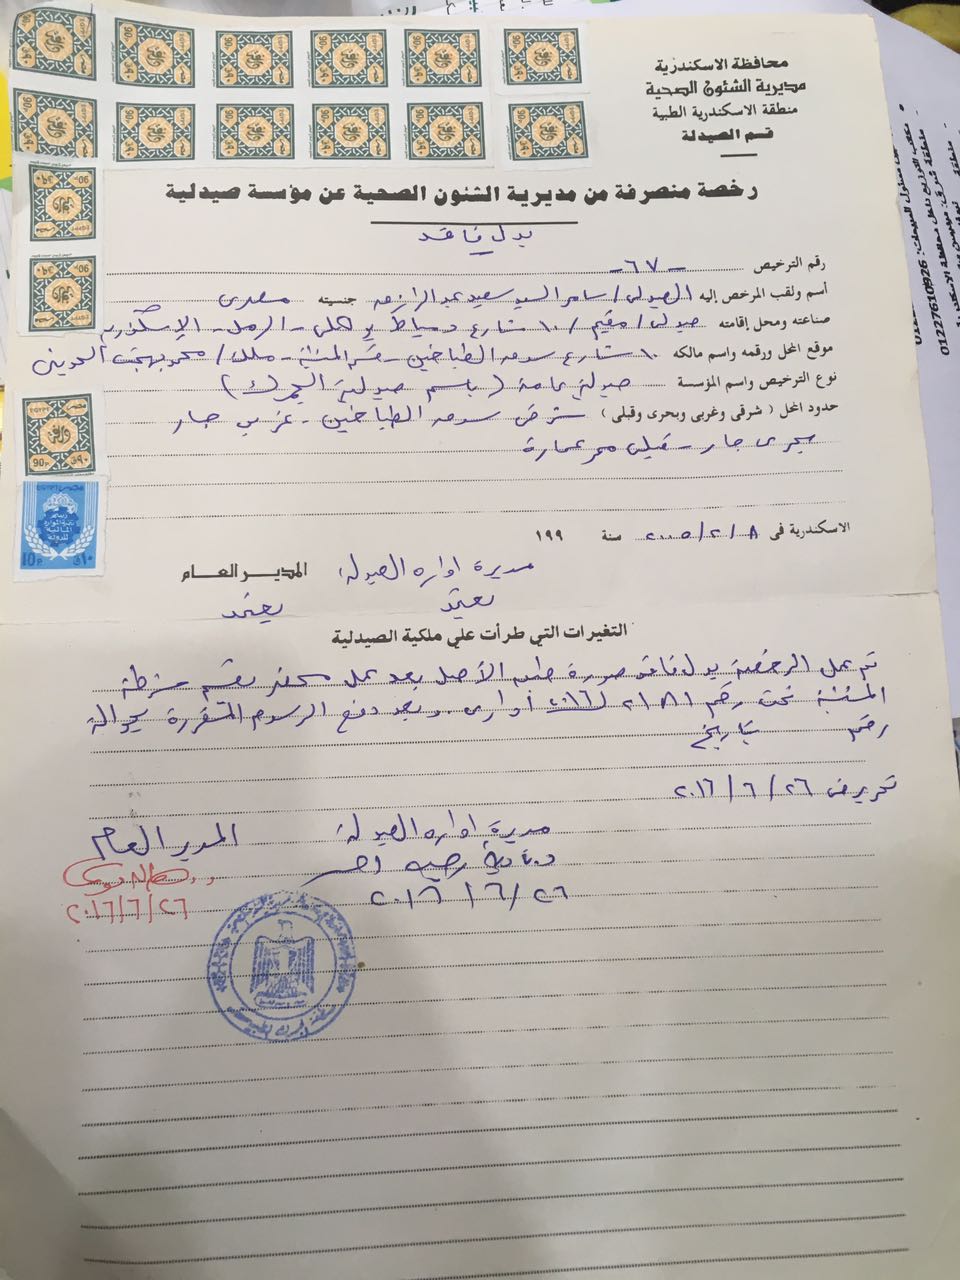 محافظة الاسكندرية
مديرية الشئون الصحية
منطقة الاسكندرية الطبية
قسم الصيدلة
رخصة منصرفة من مديرية الشئون الصحية عن مؤسسة صيدلية
بدل فاقد
رقم الترخيص -٦٧-
أسم ولقب المرخص إليه الصيدلى / سامر السيد سعيد عبد الرازق جنسيته مصرى
صناعته ومحل إقامته صيدلى / مقيم / ١٠ شارع دمياط - الرمل - الإسكندرية
موقع المحل ورقمه واسم مالكه ١٠ شارع سوق الطباخين - قسم المنشية - ملك / محمد بهجت
نوع الترخيص واسم المؤسسة صيدلية عامة ( باسم صيدلية الجمرك )
حدود المحل ( شرقى وغربى وبحرى وقبلى ) شرق سوق الطباخين - غربى جار
بحرى جار - قبلى ممر عمارة
الاسكندرية فى ٢٠٠٥/٢/٨ سنة ١٩٩
مديرة ادارة الصيدلة المدير العام
يعتمد يعتمد
التغيرات التي طرأت علي ملكية الصيدلية
تم عمل الرخصة بدل فاقد صورة طبق الأصل بعد عمل محضر بقسم شرطة
المنشية تحت رقم ٢١٨١ لسنة ٢٠١٦ ادارى . وبعد دفع الرسوم المقررة بحوالة
رقم بتاريخ
تحرير فى ٢٠١٦/٦/٢٦
مديرة ادارة الصيدلة المدير العام
د. نادية احمد
٢٠١٦/٦/٢٦
٢٠١٦/٦/٢٦
01227610926